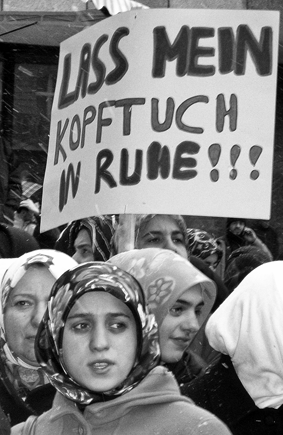 LASS MEIN
KOPFTUCH
IN RUHE!!!